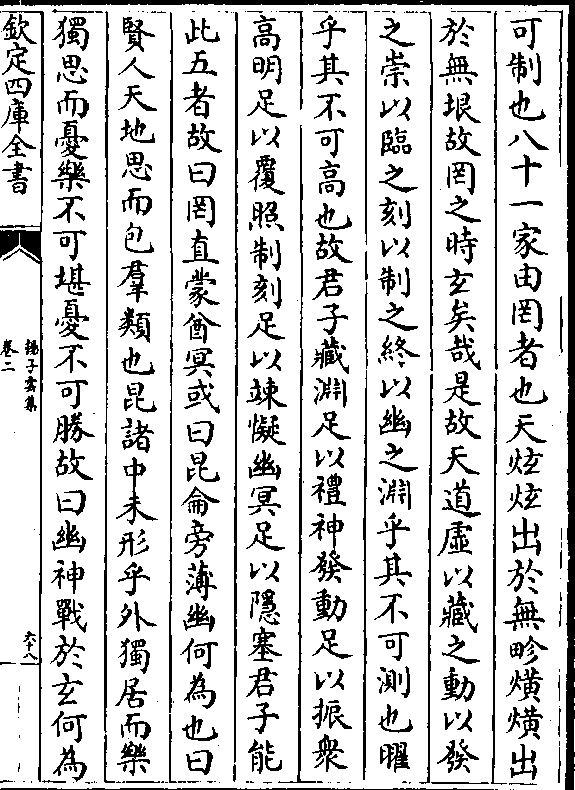 可制也八十一家由罔者也天炫炫出於無畛熿熿出
於無垠故罔之時玄矣哉是故天道虛以藏之動以發
之崇以臨之刻以制之終以幽之淵乎其不可測也曜
乎其不可高也故君子藏淵足以禮神發動足以振衆
高明足以覆照制刻足以竦懝幽冥足以隱塞君子能
此五者故曰罔直蒙酋冥或曰昆侖旁薄幽何為也曰
賢人天地思而包羣類也昆諸中未形乎外獨居而樂
獨思而憂樂不可堪憂不可勝故曰幽神戰於玄何為
欽定四庫全書
揚子雲集
卷二
六十八